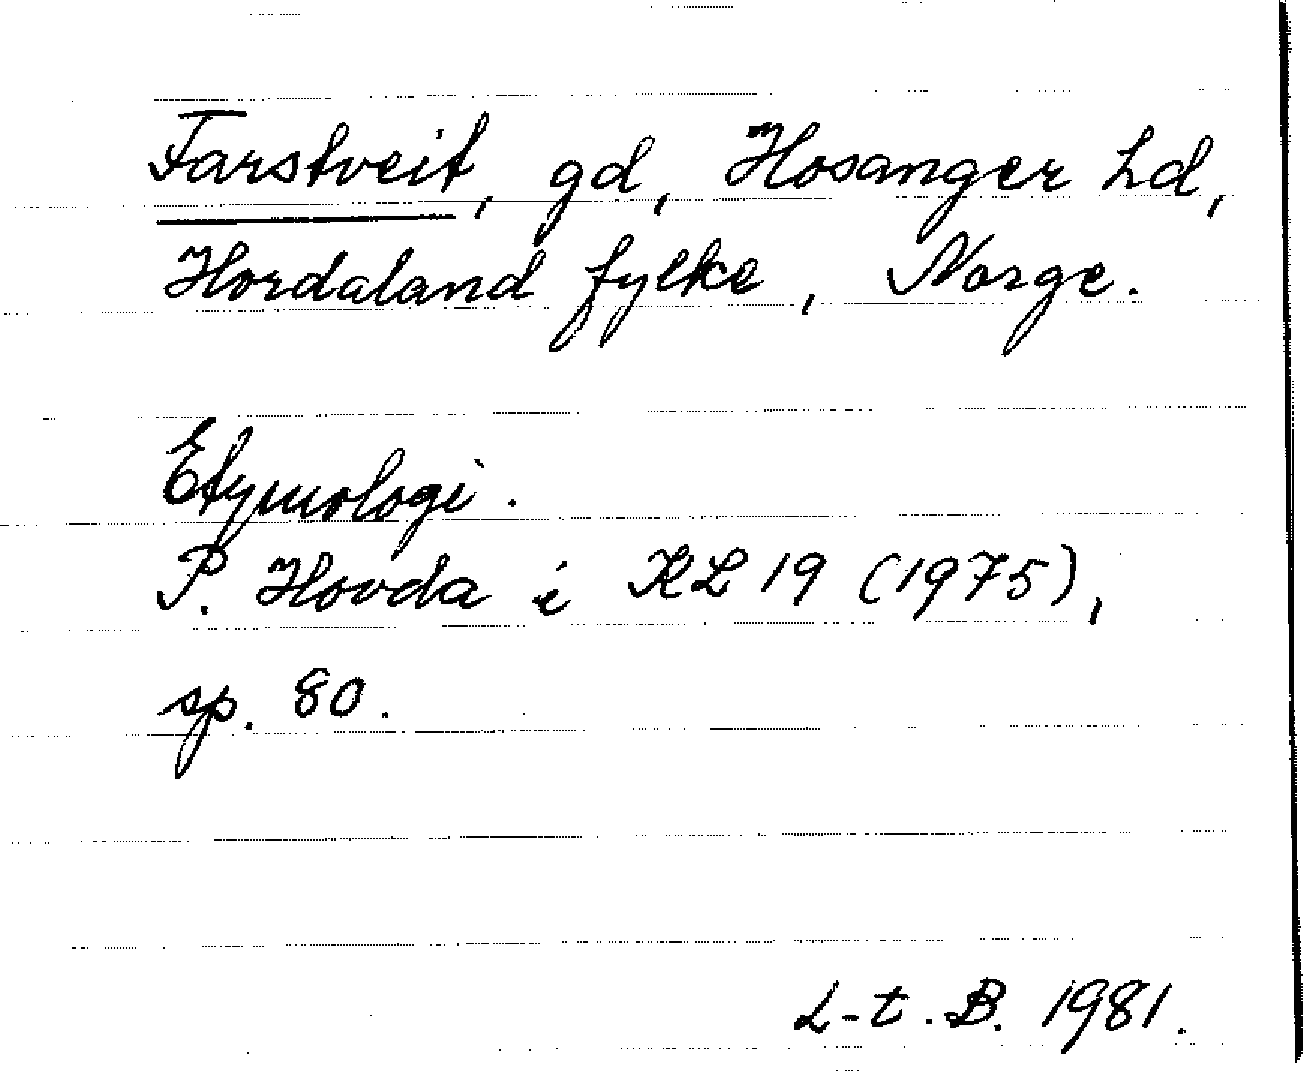 Farstveit, gd, Hosanger hd,
Hordaland fylke, Norge.
Etymologi.
P. Hovda i KL 19 (1975),
sp. 80.
L-t. B. 1981.